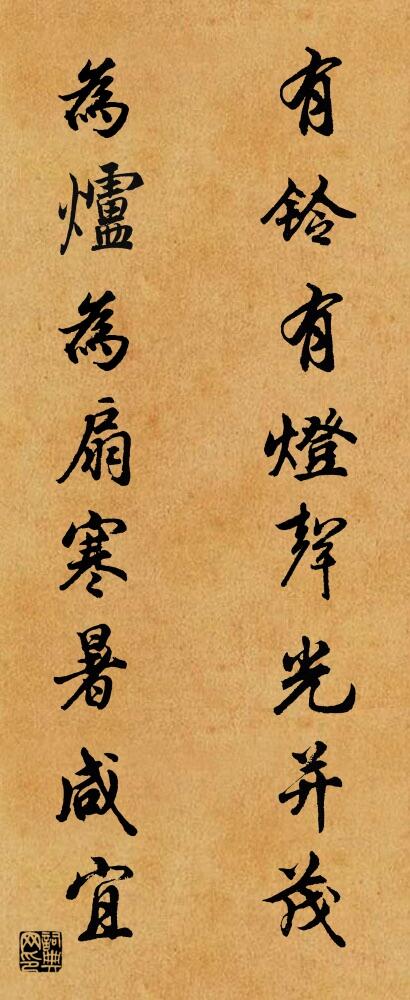 有鈴有燈聲光并茂
為爐為扇寒暑咸宜
詞典網印